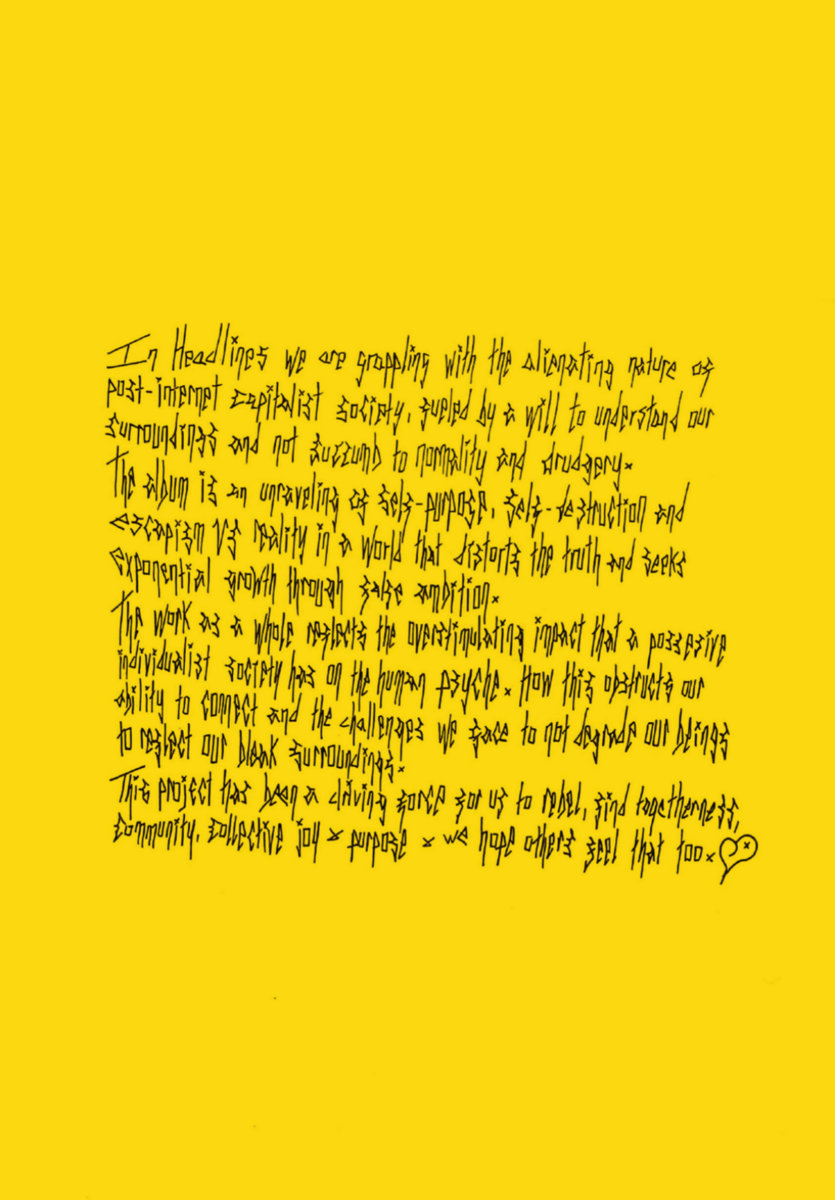 In Headlines we are grappling with the alienating nature of
post-internet capitalist society, fueled by a will to understand our
surroundings and not succumb to normality and drudgery.
The album is an unraveling of self-purpose, self-destruction and
escapism Vs reality in a world that distorts the truth and seeks
exponential growth through false ambition.
The work as a whole reflects the overstimulating impact that a possesive
individualist society has on the human psyche. How this obstructs our
ability to connect and the challenges we face to not degrade our beings
to reflect our bleak surroundings.
This project has been a driving force for us to rebel, find togetherness,
community, collective joy & purpose & we hope others feel that too.